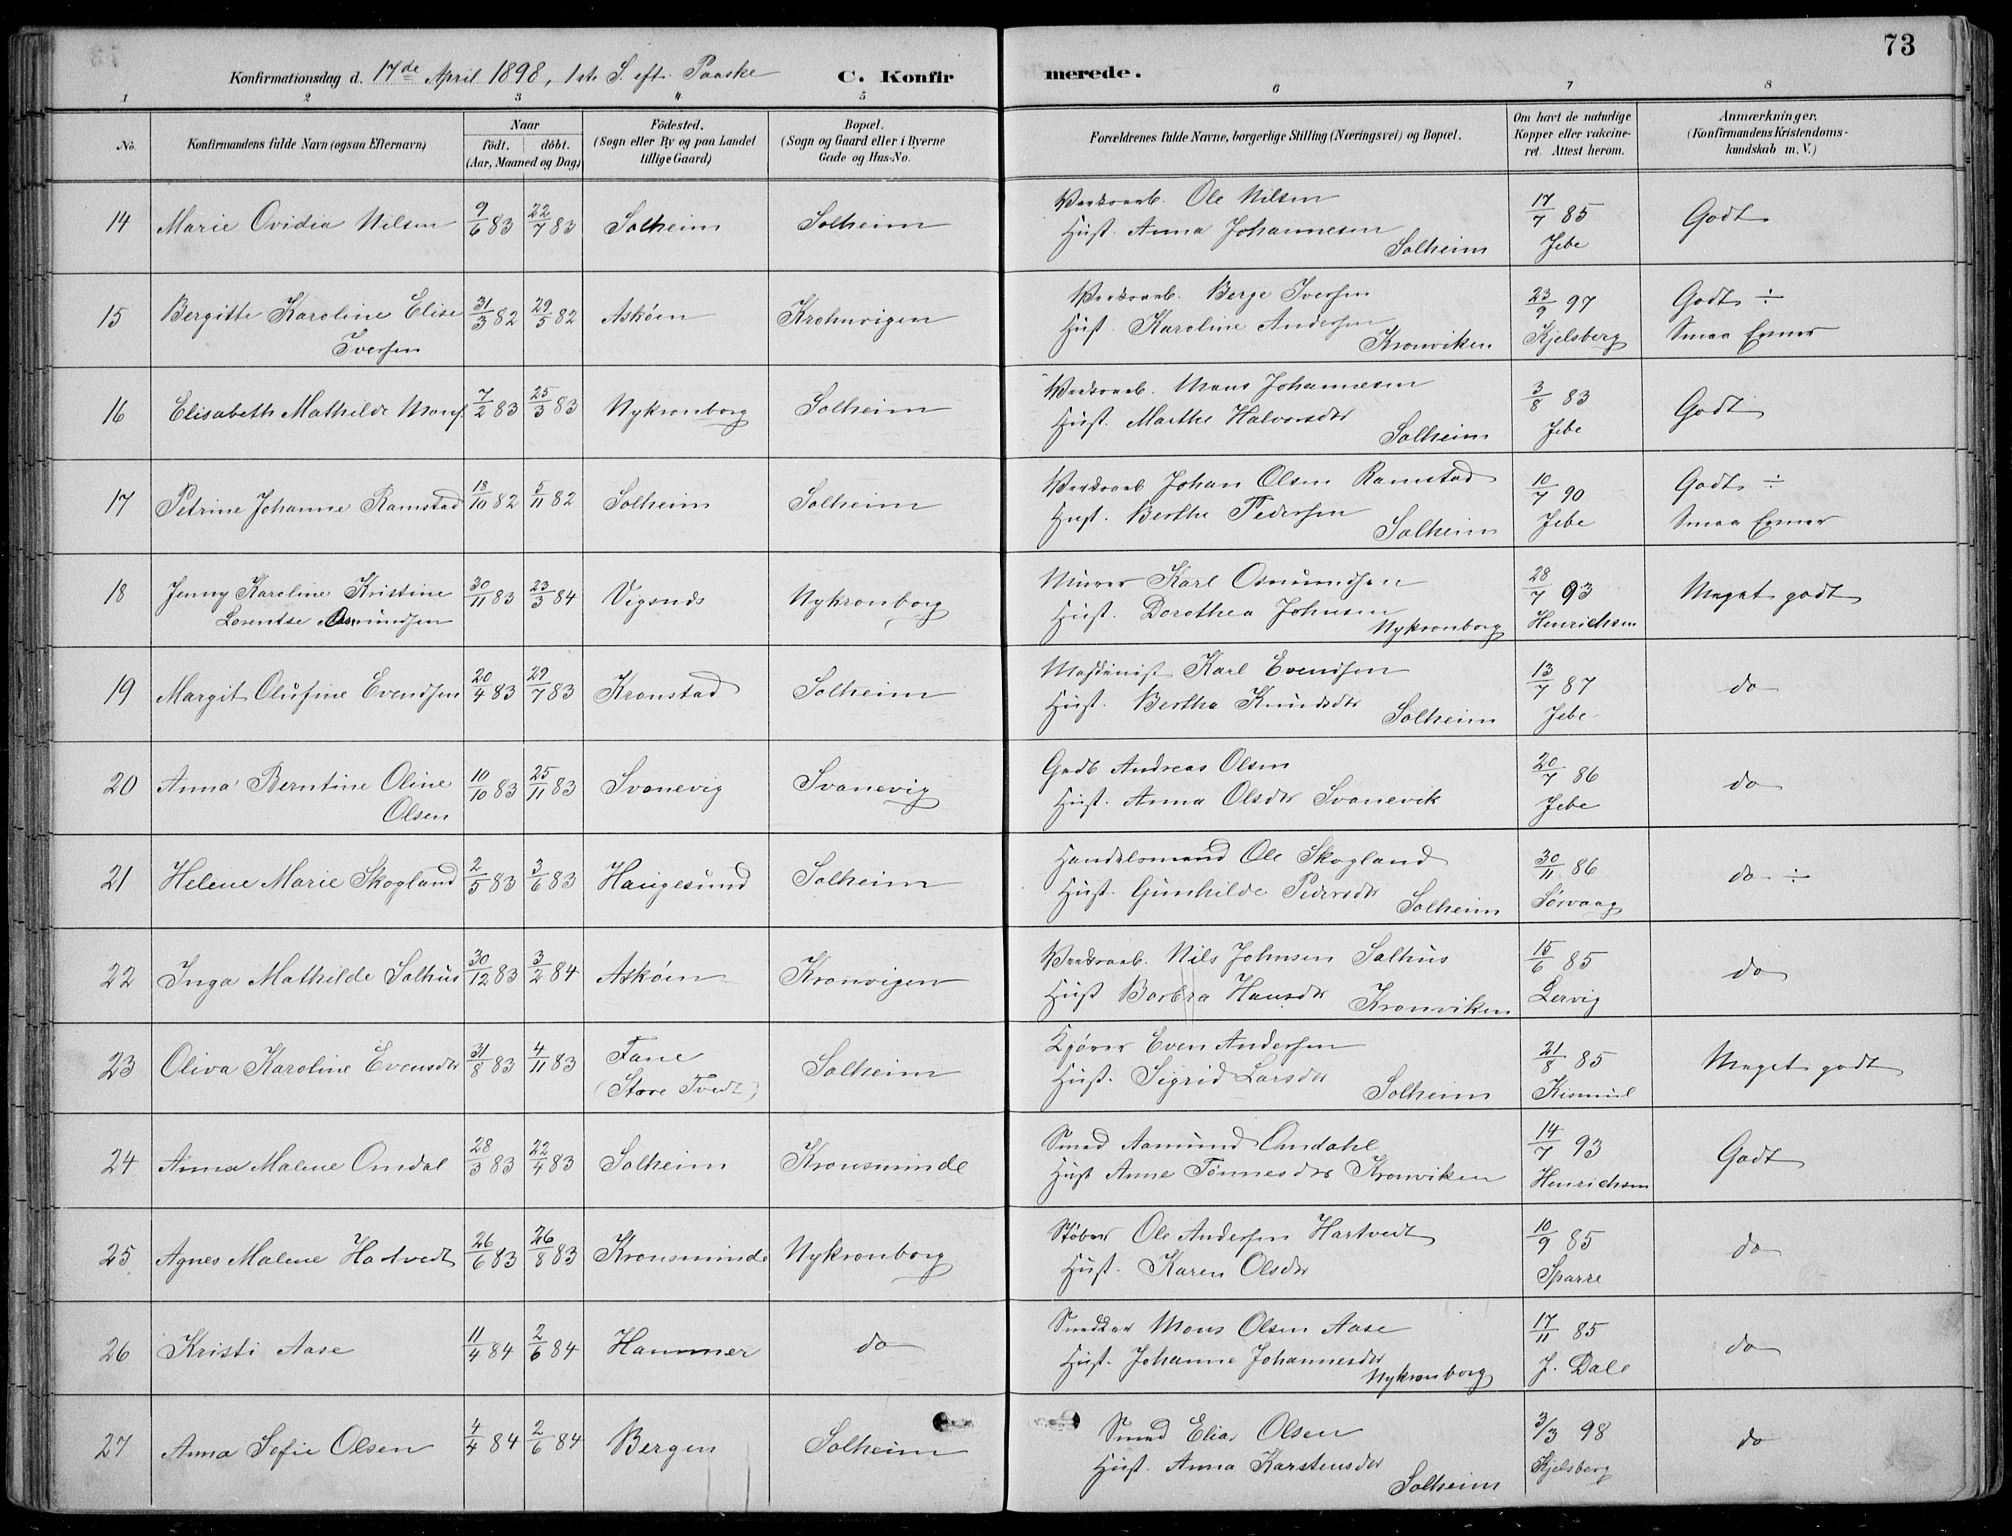 73
Konfirmationsdag d. 17de April 1898, 1ste S. eft. Paaske C. Konfirmerede.
1 2 3 4 5 6 7 8
No. Konfirmandens fulde Navn (ogsaa Efternavn) Naar födt. döbt. (Aar, Maaned og Dag) Födested. (Sogn eller By og paa Landet tillige Gaard) Bopæl. (Sogn og Gaard eller i Byerne Gade og Hus-No. Forældrenes fulde Navne, borgerlige Stilling (Næringsvei) og Bopæl. Om havt de naturlige Kopper eller vakcineret. Attest herom. Anmærkninger. (Konfirmandens Kristendomskundskab m. V.)
14 Marie Ovidia Nilsen 9/6 83 22/7 83 Solheim Solheim Værksarb. Ole Nilsen 17/7 85 Godt
Hust. Anna Johannesen Solheim Jebe
15 Bergitte Karoline Elise 31/3 82 29/5 82 Askøen Krohnvigen Værksarb. Berge Iversen 23/9 97 Godt ÷
Iversen Hust. Karoline Andersen Kronviken Kjelsberg Smaa Evner
16 Elisabeth Mathilde Mons. 7/2 83 25/3 83 Nykronborg Solheim Værksarb. Mons Johannesen 3/8 83 Godt
Hust. Marthe Halvorsdtr Solheim Jebe
17 Petrine Johanne Ramstad 18/10 82 5/11 82 Solheim Solheim Værksarb Johan Olsen Ramstad 10/7 90 Godt ÷
Hust. Berthe Pedersen Solheim Jebe Smaa Evner
18 Jenny Karoline Kristine 30/11 83 23/3 84 Vigsnes Nykronborg Murer Karl Osmundsen 28/7 93 Meget godt
Lorentse Osmundsen Hust. Dorothea Johnsen Nykronborg Henrichsen
19 Margit Olufine Evendsen 20/4 83 29/7 83 Kronstad Solheim Maskinist Karl Evendsen 13/7 87 do
Hust. Bertha Knudsdtr Solheim Jebe
20 Anna Berntine Oline 10/10 83 25/11 83 Svanevig Svanevig Gadb Andreas Olsen 20/7 86 do
Olsen Hust. Anna Olsdtr Svanevik Jebe
21 Helene Marie Skogland 2/5 83 3/6 83 Haugesund Solheim Handelsmand Ole Skogland 30/11 86 do ÷
Hust. Gunhilde Pedersdtr Solheim Sørvaag
22 Inga Mathilde Salhus 30/12 83 3/2 84 Askøen Kronvigen Værksarb. Nils Johnsen Salhus 15/6 85 do
Hust Barbra Hansdtr Kronviken Lervig
23 Oliva Karoline Evensdtr 31/8 83 4/11 83 Fane Solheim Kjører Even Andersen 21/8 85 Meget godt
(Store Tvedt) Hust. Sigrid Larsdtr Solheim Kismul
24 Anna Malene Omdal 28/3 83 22/4 83 Solheim Kronsminde Smed Aamund Omdahl 14/7 93 Godt
Hust Anne Tønnesdtr Kronviken Henrichsen
25 Agnes Malene Hartvedt 26/6 83 26/8 83 Kronsminde Nykronborg Støber Ole Andersen Hartvedt 10/9 85 do
Hust. Karen Olsdtr Sparre
26 Kristi Aase 11/4 84 2/6 84 Hammer do Snedker Mons Olsen Aase 17/11 85 do
Hust. Johanne Johannesdtr Nykronborg J. Dale
27 Anna Sofie Olsen 4/4 84 2/6 84 Bergen Solheim Smed Elias Olsen 3/3 98 do
Hust. Anna Karstensdtr Solheim Kjelsberg